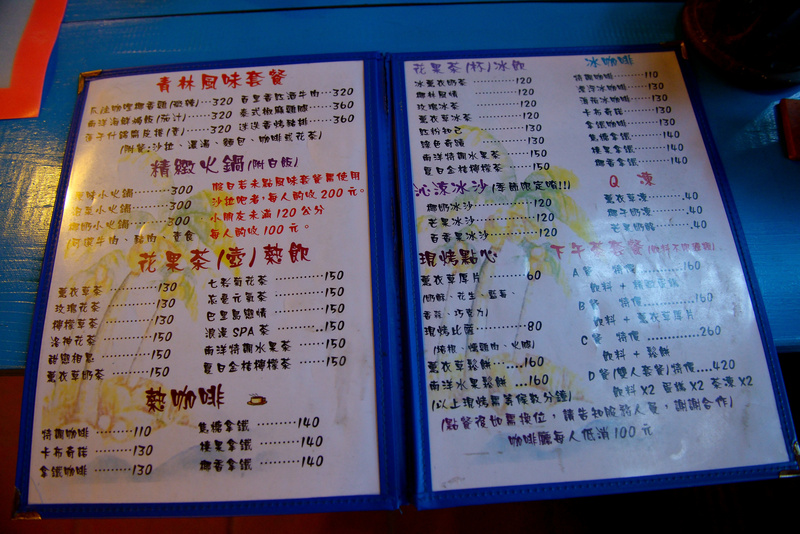 青林風味套餐
瓦法咖哩椰香雞(微辣)……320
南洋海鮮焗飯(茄汁)……320
蓮子什錦腐皮捲(素)……320
百里香紅酒牛肉…320
泰式椒麻雞腿……360
迷迭香烤豬排……360
(附餐:沙拉、濃湯、麵包、咖啡或花茶)
精緻火鍋(附白飯)
原味小火鍋………300
泡菜小火鍋………300
椰奶小火鍋………300
(可選牛肉、豬肉、素食)
假日若未點風味套餐需使用
沙拉吧者,每人酌收200元。
小朋友未滿120公分
每人酌收100元。
花果茶(壺)熱飲
薰衣草茶…………130
玫瑰花茶…………130
檸檬草茶…………130
洛神花茶…………150
甜戀相思…………150
薰衣草奶茶………150
七彩菊花茶…………150
衣麥元氣茶…………150
巴里島戀情…………150
浪漫SPA茶…………150
南洋特調水果茶……150
夏日金桔檸檬茶……150
熱咖啡
特調咖啡………110
卡布奇諾………130
拿鐵咖啡………130
焦糖拿鐵………140
榛果拿鐵………140
椰香拿鐵………140
花果茶(杯)冰飲
冰薰衣奶茶…………120
椰林風情…………120
玫瑰冰茶…………120
薰衣草冰茶…………120
紅粉知己…………120
綠色奇蹟…………130
南洋特調水果茶……150
夏日金桔檸檬茶……150
冰咖啡
特調咖啡………110
漂浮冰咖啡……130
薄荷冰咖啡……130
卡布奇諾………130
拿鐵咖啡………130
焦糖拿鐵………140
榛果拿鐵………140
椰香拿鐵………140
沁涼冰沙(季節限定唷!!!)
椰奶冰沙…………120
芒果冰沙…………120
百香果冰沙………120
Q 凍
薰衣草凍………40
椰子奶凍………40
芒果奶酪………40
現烤點心
薰衣草厚片…………60
(奶酥、花生、藍莓、
香蒜、巧克力)
現烤比薩…………80
(燒烤、燻雞肉、火腿)
薰衣草鬆餅……160
南洋水果鬆餅…160
(以上現烤需等候數分鐘)
下午茶套餐
A餐 特價……160
飲料+
B餐 特價……160
飲料+薰衣草厚片
C餐 特價……260
飲料+鬆餅
D餐(雙人套餐)特價…420
飲料X2 蛋糕X2 茶凍X2
(點餐後如需換位,請告知服務人員,謝謝合作)
咖啡廳每人低消100元